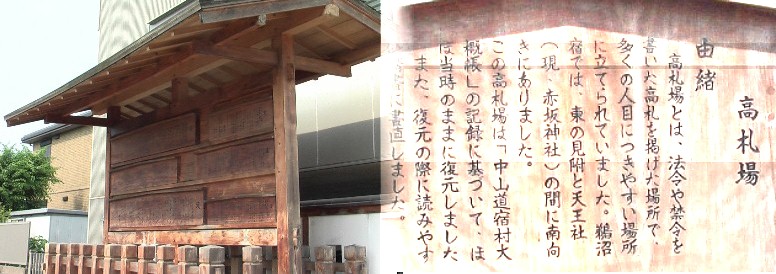 高札場
由緒
高札場とは、法令や禁令を
書いた高札を掲げた場所で、
多くの人目につきやすい場所
に立てられていました。鵜沼
宿では、東の見附と天王社
(現、赤坂神社)の間に南向
きにありました。
この高札場は「中山道宿村大
概帳」の記録に基づいて、ほ
ぼ当時のままに復元しました
また、復元の際に読みやす
に書直しました。